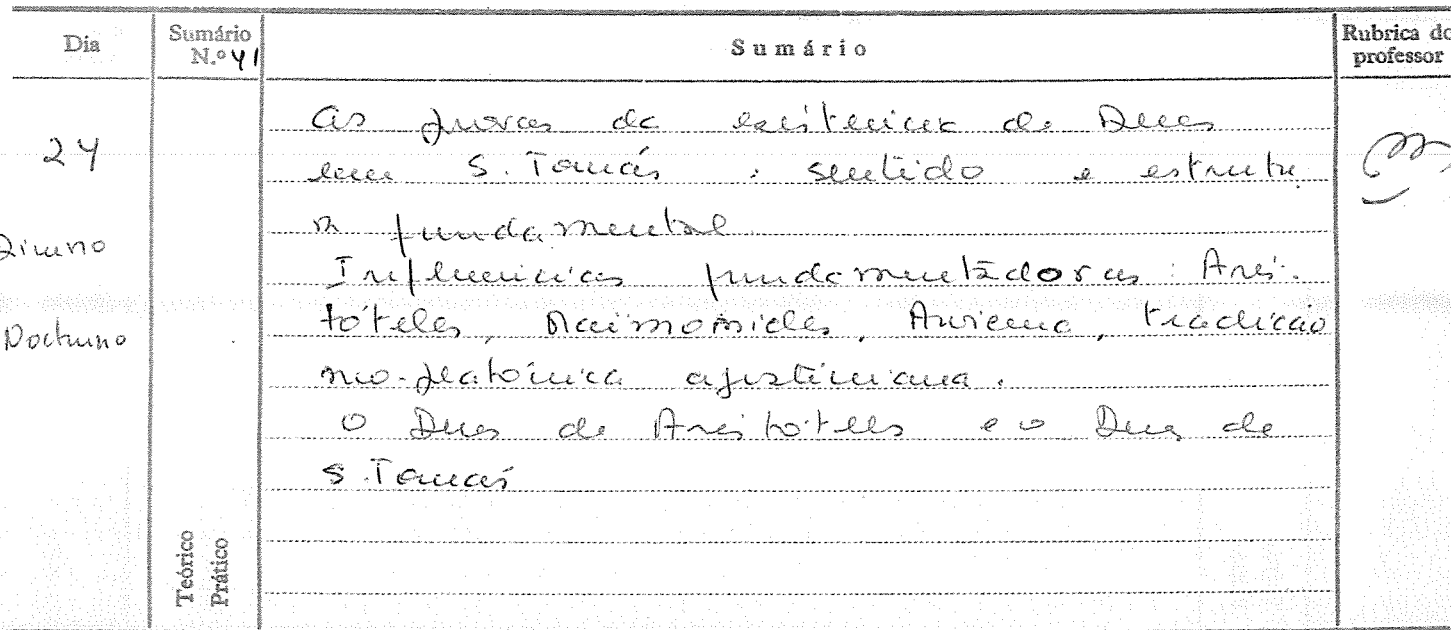 Dia
Sumário
N.º 41
Sumário
Rubrica do
professor
24
Diurno
Nocturno
As provas da existência de Deus
em S. Tomás : sentido e estrutu
ra fundamental
Influências fundamentadoras : Aris-
tóteles, Maimonides, Avicena, tradição
neo-platónica agustiniana.
O Deus de Aristóteles e o Deus de
S. Tomás
Teórico
Prático